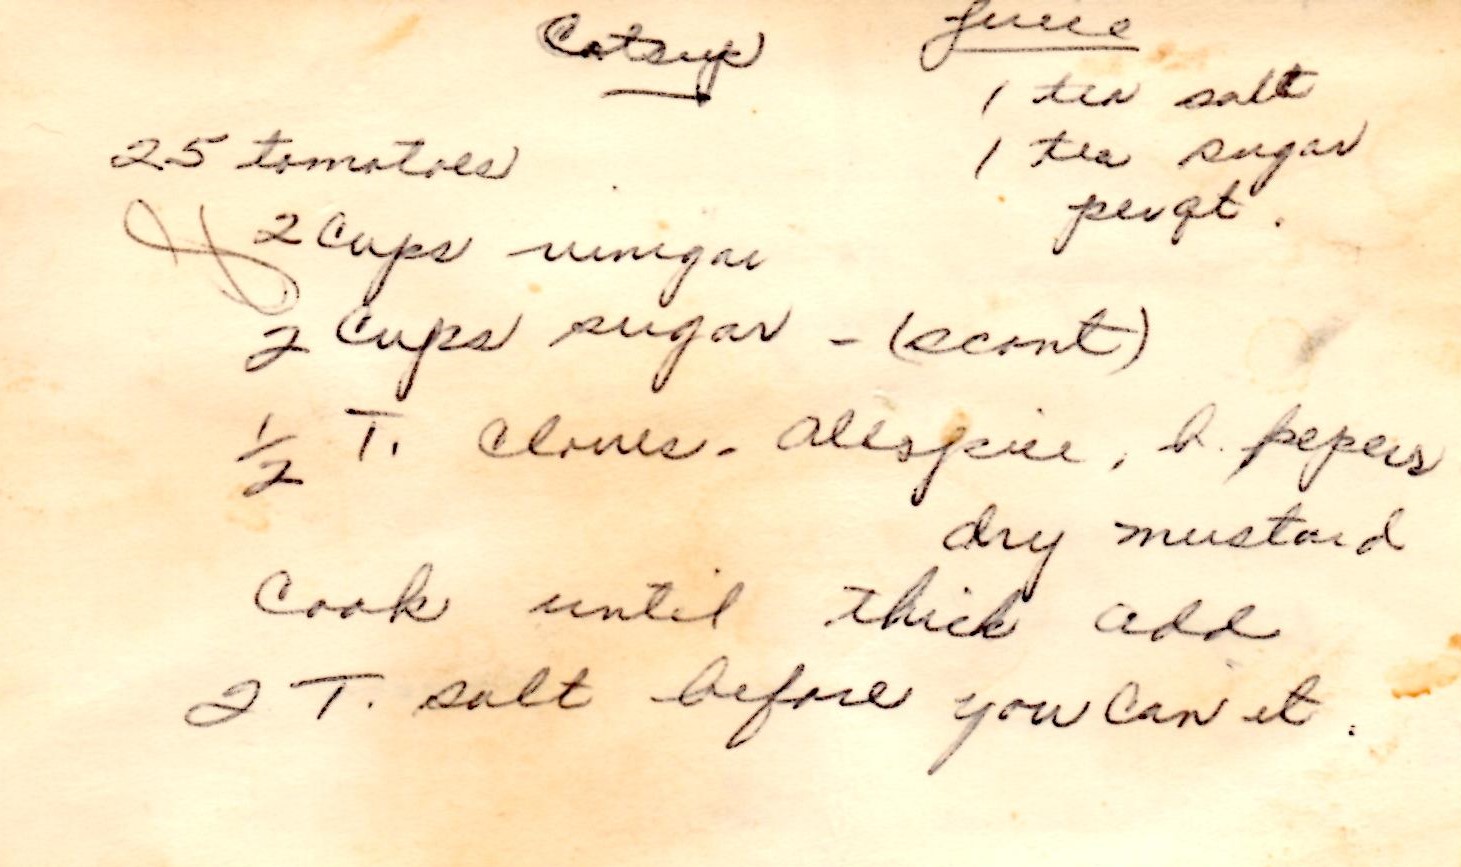 Catsup
25 tomatoes
2 Cups vinigar
2 Cups sugar - (scant)
1/2 T. Cloves - Allspice, b. pepers
dry mustard
Cook until thick add
2 T. salt before you can it.
Juice
1 tea salt
1 tea sugar
per qt.